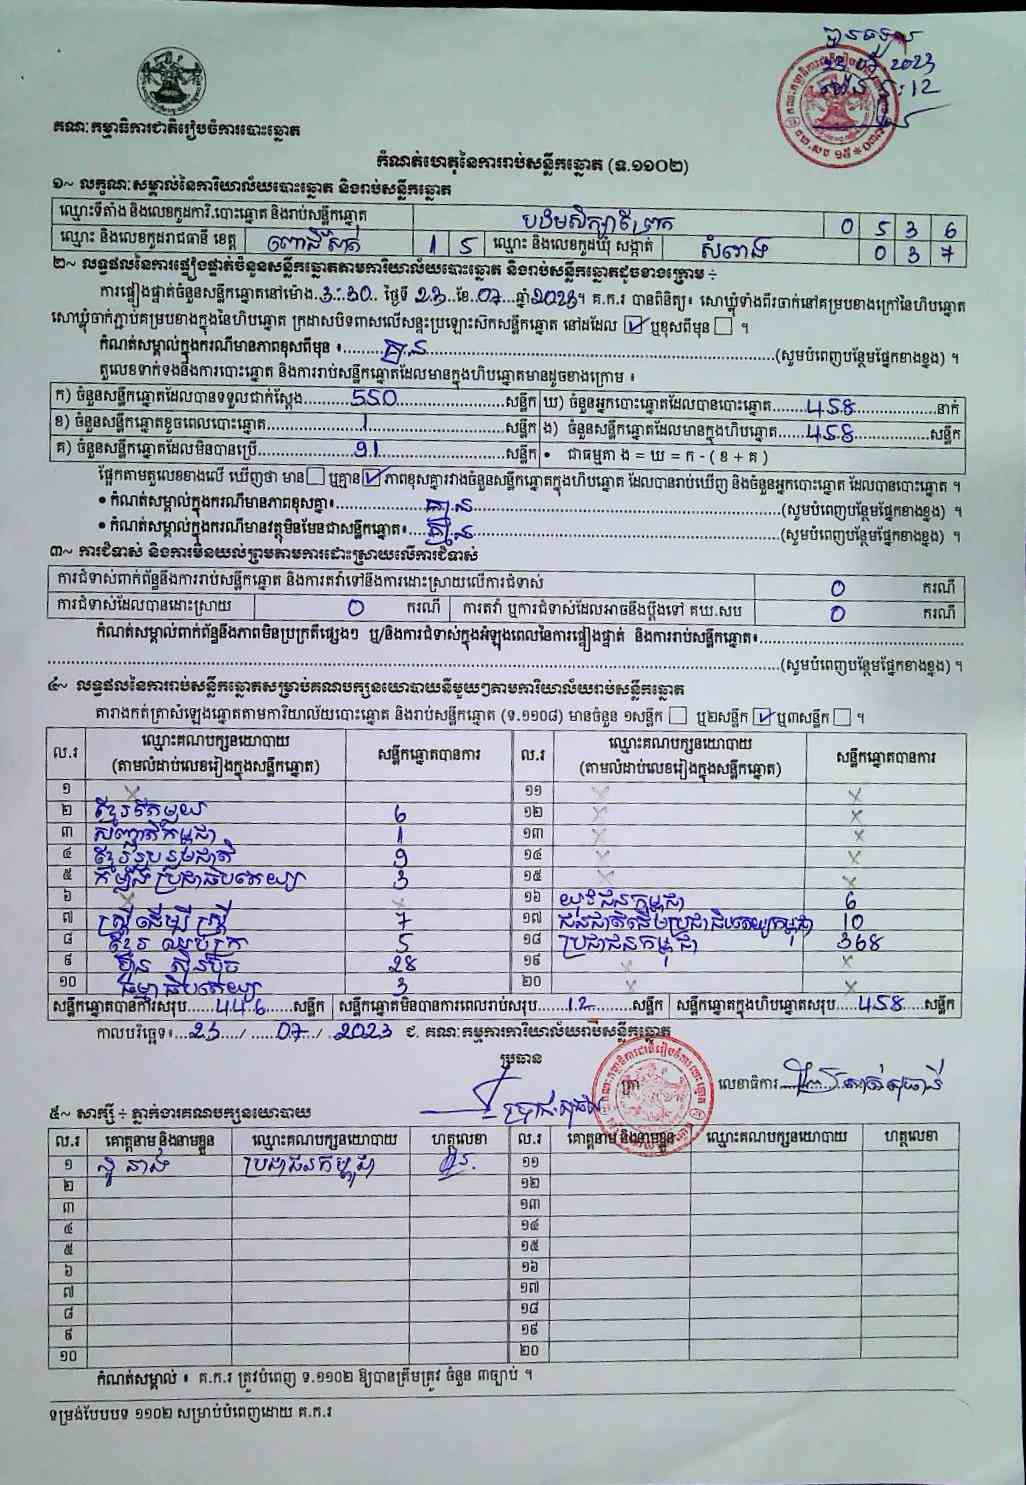 គណៈកម្មាធិការជាតិរៀបចំការបោះឆ្នោត
កំណត់ហេតុនៃការរាប់សន្លឹកឆ្នោត (ទ.១១០២)
១~ លក្ខណៈសម្គាល់នៃការិយាល័យបោះឆ្នោត និងរាប់សន្លឹកឆ្នោត
ឈ្មោះទីតាំង និងលេខកូដការិ.បោះឆ្នោត និងរាប់សន្លឹកឆ្នោត 0 5 3 6
ឈ្មោះ និងលេខកូដរាជធានី ខេត្ត ពោធិ៍សាត់ 1 5 ឈ្មោះ និងលេខកូដឃុំ សង្កាត់ សំរោង 0 3 7
២~ លទ្ធផលនៃការផ្ទៀងផ្ទាត់ចំនួនសន្លឹកឆ្នោតតាមការិយាល័យបោះឆ្នោត និងរាប់សន្លឹកឆ្នោតដូចខាងក្រោម ÷
ការផ្ទៀងផ្ទាត់ចំនួនសន្លឹកឆ្នោតនៅម៉ោង 3:30 ថ្ងៃទី 23 ខែ 07 ឆ្នាំ 2023។ គ.ក.រ បានពិនិត្យ៖ សោឃ្លុំទាំងពីរចាក់នៅគម្របខាងក្រៅនៃហិបឆ្នោត
សោឃ្លុំចាក់ភ្ជាប់គម្របខាងក្នុងនៃហិបឆ្នោត ក្រដាសបិទពាសលើសន្ទះប្រឡោះស៊កសន្លឹកឆ្នោត នៅដដែល ☑ ឬខុសពីមុន ☐ ។
កំណត់សម្គាល់ក្នុងករណីមានភាពខុសពីមុន ៖ គ្មាន (សូមបំពេញបន្ថែមផ្នែកខាងខ្នង) ។
តួលេខទាក់ទងនឹងការបោះឆ្នោត និងការរាប់សន្លឹកឆ្នោតដែលមានក្នុងហិបឆ្នោតមានដូចខាងក្រោម ៖
ក) ចំនួនសន្លឹកឆ្នោតដែលបានទទួលជាក់ស្តែង 550 សន្លឹក ឃ) ចំនួនអ្នកបោះឆ្នោតដែលបានបោះឆ្នោត 458 នាក់
ខ) ចំនួនសន្លឹកឆ្នោតខូចពេលបោះឆ្នោត 1 សន្លឹក ង) ចំនួនសន្លឹកឆ្នោតដែលមានក្នុងហិបឆ្នោត 458 សន្លឹក
គ) ចំនួនសន្លឹកឆ្នោតដែលមិនបានប្រើ 91 សន្លឹក • ជាធម្មតា ង = ឃ = ក - ( ខ + គ )
ផ្អែកតាមតួលេខខាងលើ ឃើញថា មាន ☐ ឬគ្មាន ☑ ភាពខុសគ្នារវាងចំនួនសន្លឹកឆ្នោតក្នុងហិបឆ្នោត ដែលបានរាប់ឃើញ និងចំនួនអ្នកបោះឆ្នោត ដែលបានបោះឆ្នោត ។
• កំណត់សម្គាល់ក្នុងករណីមានភាពខុសគ្នា៖ គ្មាន (សូមបំពេញបន្ថែមផ្នែកខាងខ្នង) ។
• កំណត់សម្គាល់ក្នុងករណីមានវត្ថុមិនមែនជាសន្លឹកឆ្នោត៖ គ្មាន (សូមបំពេញបន្ថែមផ្នែកខាងខ្នង) ។
៣~ ការជំទាស់ និងការមិនយល់ព្រមតាមការដោះស្រាយលើការជំទាស់
ការជំទាស់ពាក់ព័ន្ធនឹងការរាប់សន្លឹកឆ្នោត និងការតវ៉ាទៅនឹងការដោះស្រាយលើការជំទាស់ 0 ករណី
ការជំទាស់ដែលបានដោះស្រាយ 0 ករណី ការតវ៉ា ឬការជំទាស់ដែលអាចនឹងប្តឹងទៅ គឃ.សប 0 ករណី
កំណត់សម្គាល់ពាក់ព័ន្ធនឹងភាពមិនប្រក្រតីផ្សេងៗ ឬ/និងការជំទាស់ក្នុងអំឡុងពេលនៃការផ្ទៀងផ្ទាត់ និងការរាប់សន្លឹកឆ្នោត៖
(សូមបំពេញបន្ថែមផ្នែកខាងខ្នង) ។
៤~ លទ្ធផលនៃការរាប់សន្លឹកឆ្នោតសម្រាប់គណបក្សនយោបាយនីមួយៗតាមការិយាល័យរាប់សន្លឹកឆ្នោត
តារាងកត់ត្រាសំឡេងឆ្នោតតាមការិយាល័យបោះឆ្នោត និងរាប់សន្លឹកឆ្នោត (ទ.១១០៨) មានចំនួន ១សន្លឹក ☐ ឬ២សន្លឹក ☑ ឬ៣សន្លឹក ☐ ។
ល.រ ឈ្មោះគណបក្សនយោបាយ (តាមលំដាប់លេខរៀងក្នុងសន្លឹកឆ្នោត) សន្លឹកឆ្នោតបានការ ល.រ ឈ្មោះគណបក្សនយោបាយ (តាមលំដាប់លេខរៀងក្នុងសន្លឹកឆ្នោត) សន្លឹកឆ្នោតបានការ
១ x ១១ x x
២ ខ្មែរតែមួយ 6 ១២ x x
៣ សញ្ជាតិកម្ពុជា 1 ១៣ x x
៤ ខ្មែររួបរួមជាតិ 9 ១៤ x x
៥ កម្លាំងប្រជាធិបតេយ្យ 3 ១៥ x x
៦ x x ១៦ យុវជនកម្ពុជា 6
៧ ស្ត្រីដើម្បីស្ត្រី 7 ១៧ ជនជាតិដើមប្រជាធិបតេយ្យកម្ពុជា 10
៨ ខ្មែរឈប់ក្រ 5 ១៨ ប្រជាជនកម្ពុជា 368
៩ ហ្វ៊ុនស៊ិនប៉ិច 28 ១៩ x x
១០ ធម្មាធិបតេយ្យ 3 ២០ x x
សន្លឹកឆ្នោតបានការសរុប 446 សន្លឹក សន្លឹកឆ្នោតមិនបានការពេលរាប់សរុប 12 សន្លឹក សន្លឹកឆ្នោតក្នុងហិបឆ្នោតសរុប 458 សន្លឹក
កាលបរិច្ឆេទ៖ 23 / 07 / 2023 ជ. គណៈកម្មការការិយាល័យរាប់សន្លឹកឆ្នោត
ប្រធាន
ត្រា លេខាធិការ
៥~ សាក្សី ÷ ភ្នាក់ងារគណបក្សនយោបាយ
ល.រ គោត្តនាម និងនាមខ្លួន ឈ្មោះគណបក្សនយោបាយ ហត្ថលេខា ល.រ គោត្តនាម និងនាមខ្លួន ឈ្មោះគណបក្សនយោបាយ ហត្ថលេខា
១ ប្រជាជនកម្ពុជា ១១
២ ១២
៣ ១៣
៤ ១៤
៥ ១៥
៦ ១៦
៧ ១៧
៨ ១៨
៩ ១៩
១០ ២០
កំណត់សម្គាល់ ៖ គ.ក.រ ត្រូវបំពេញ ទ.១១០២ ឱ្យបានត្រឹមត្រូវ ចំនួន ៣ច្បាប់ ។
ទម្រង់បែបបទ ១១០២ សម្រាប់បំពេញដោយ គ.ក.រ